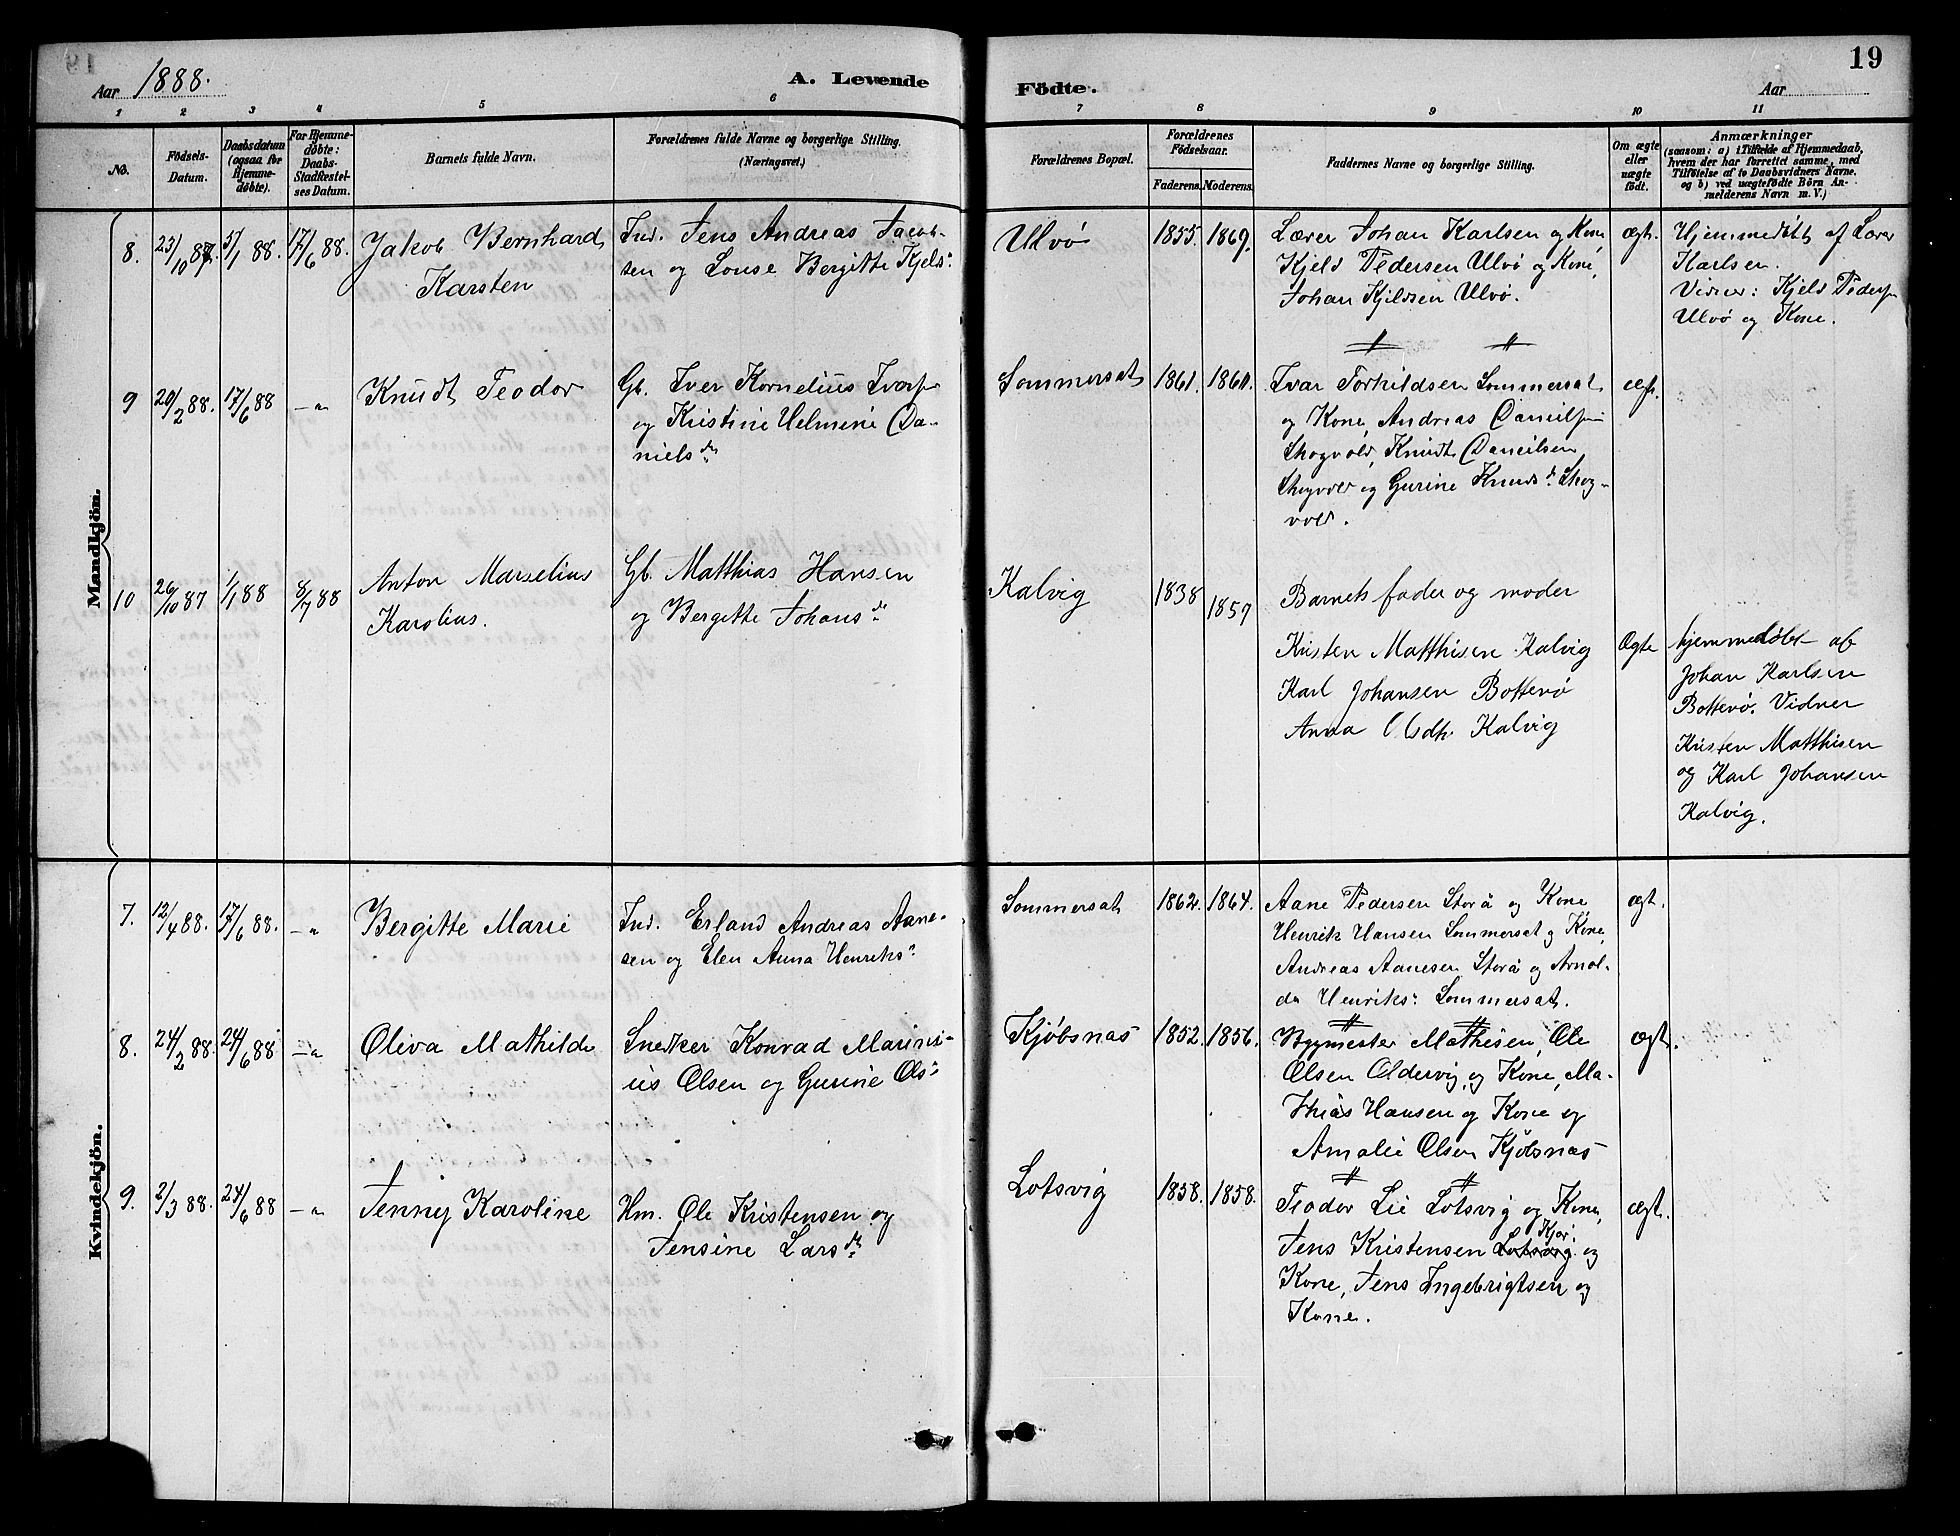 19
Aar 1888. A. Levende Födte. Aar
1 2 3 4 5 6 7 8 9 10 11
No.
Födsels-Datum.
Daabsdatum (ogsaa for Hjemmedöbte).
For Hjemmedöbte: Daabs-Stadfæstelses Datum.
Barnets fulde Navn.
Forældrenes fulde Navne og borgerlige Stilling. (Næringsvei.)
Forældrenes Bopæl.
Forældrenes Födselsaar.
Faderens. Moderens.
Faddernes Navne og borgerlige Stilling.
Om ægte eller uægte födt.
Anmærkninger
(saasom: a) i Tilfælde af Hjemmedaab,
hvem der har forrettet samme, med
Tilföielse af to Daabsvidners Navne,
og b) ved uægtefödte Börn An-
melderens Navn m. V.)
Mandkjön.
8. 23/10 87. 5/1 88. 17/6 88.
Jakob Bernhard
Karsten
Ind. Jens Andreas Jacob-
sen og Louse Bergitte Kjelsd:
Ulvö 1855. 1869.
Lærer Johan Karlsen og Kone
Kjeld Pedersen Ulvö og Kone,
Johan Kjeldsen Ulvö.
ægt.
Hjemmedöbt af Lærer
Karlsen.
Vidner: Kjeld Peders.
Ulvö og Kone.
9 20/2 88. 17/6 88 -"-
Knudt Teodor
Gb. Iver Kornelius Ivars.
og Kristine Helmine Da-
niels dr.
Sommersæt 1861. 1861.
Ivar Torkildsen Sommersæt
og Kone, Andreas Daneilsen
Skogvold, Knudt Daneilsen
Skogvold og Gurine Knuds d. Skog-
vold.
ægt.
10 26/10 87 1/1 88 8/7 88
Anton Marselius
Karolius.
Gb. Matthias Hansen
og Bergitte Johans dr
Kalvig 1838 1857
Barnets fader og moder
Kristen Matthisen Kalvig
Karl Johansen Bottevö
Anna Olsdtr. Kalvig
Ægte
hjemmedöbt af
Johan Karlsen
Bottevö. Vidner
Kristen Matthisen
og Karl Johansen
Kalvig.
Kvindekjön.
7. 12/4 88. 17/6 88. -"-
Bergitte Marie
Ind. Erland Andreas Aane-
sen og Elen Anna Henriksd:
Sommersæt 1862. 1864.
Aane Pedersen Storå og Kone
Henrik Hansen Sommersæt og Kone,
Andreas Aanesen Storå og Arnol-
da Henriksd: Sommersæt.
ægt.
8. 24/2 88. 24/6 88 -"-
Oliva Mathilde
Snedker Konrad Marini-
us Olsen og Gurine Olsd:
Kjöbsnæs 1852. 1856.
Bygmester Mathisen, Ole
Olsen Oldervig, og Kone, Ma-
thias Hansen og Kone og
Amalie Olsen Kjöbsnæs
ægt.
9. 2/3 88. 24/6 88 -"-
Jenny Karoline
Hm. Ole Kristensen og
Jensine Lars dtr.
Lotsvig 1858. 1858.
Teodor Lie Lotsvig og Kone,
Jens Kristensen Lotsvig Kjör: og
Kone, Jens Ingebrigtsen og
Kone.
ægt.